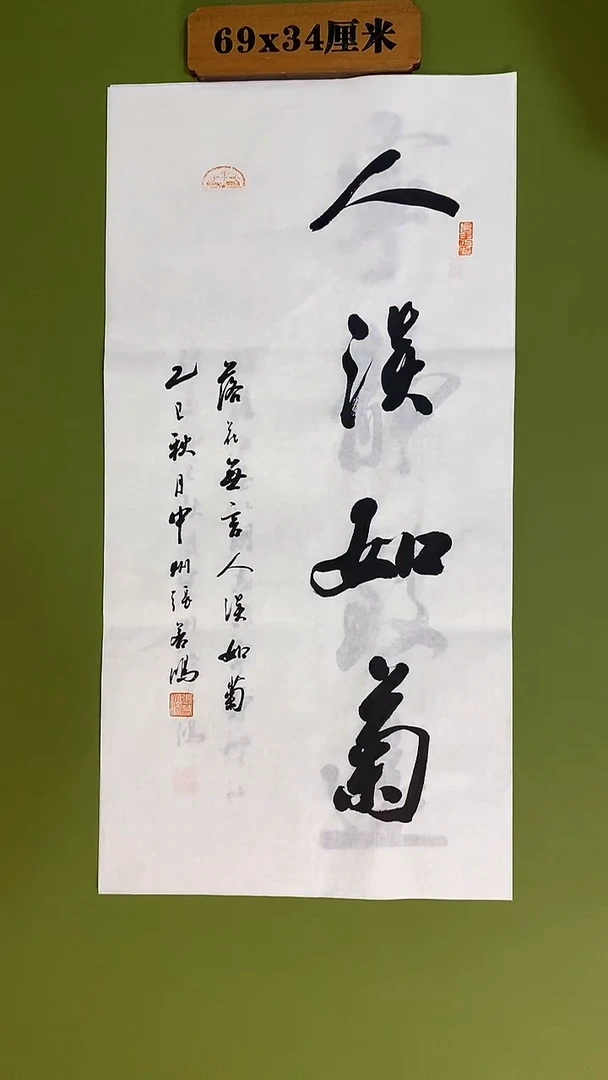 69x34厘米
人淡如菊
落花無言人淡如菊
乙巳秋月中州張若鴻